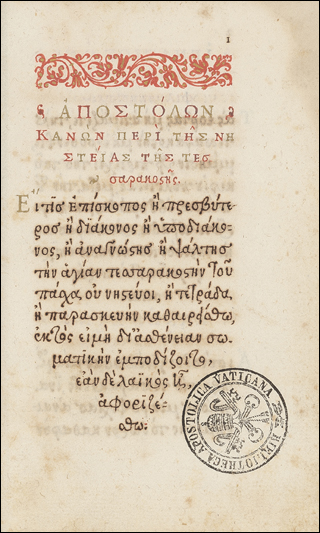 1
ἈΠΟΣΤΌΛΩΝ
ΚΑΝΩΝ ΠΕΡῚ ΤΗ͂Σ ΝΗ
ΣΤΕΊΑΣ ΤΗ͂Σ ΤΕΣ
σαρακοςῆς.
Εἴ τις ἐπίσκοπος ἢ πρεσβύτε
ρος ἢ διάκονος ἢ ὑποδιάκο-
νος, ἢ ἀναγνώςης ἢ ψάλτης
τὴν ἁγίαν τεσσαρακοςὴν τοῦ
πάσχα, οὐ νηςεύοι, ἢ τετράδα,
ἢ παρασκευὴν καθαιρείσθω,
ἐκτὸς εἰ μὴ δι' ἀσθένειαν σω
ματικὴν ἐμποδίζοιτο,
ἐὰν δὲ λαϊκὸς ᾖ,
ἀφοριζέ-
σθω:
BIBLIOTHECA APOSTOLICA VATICANA